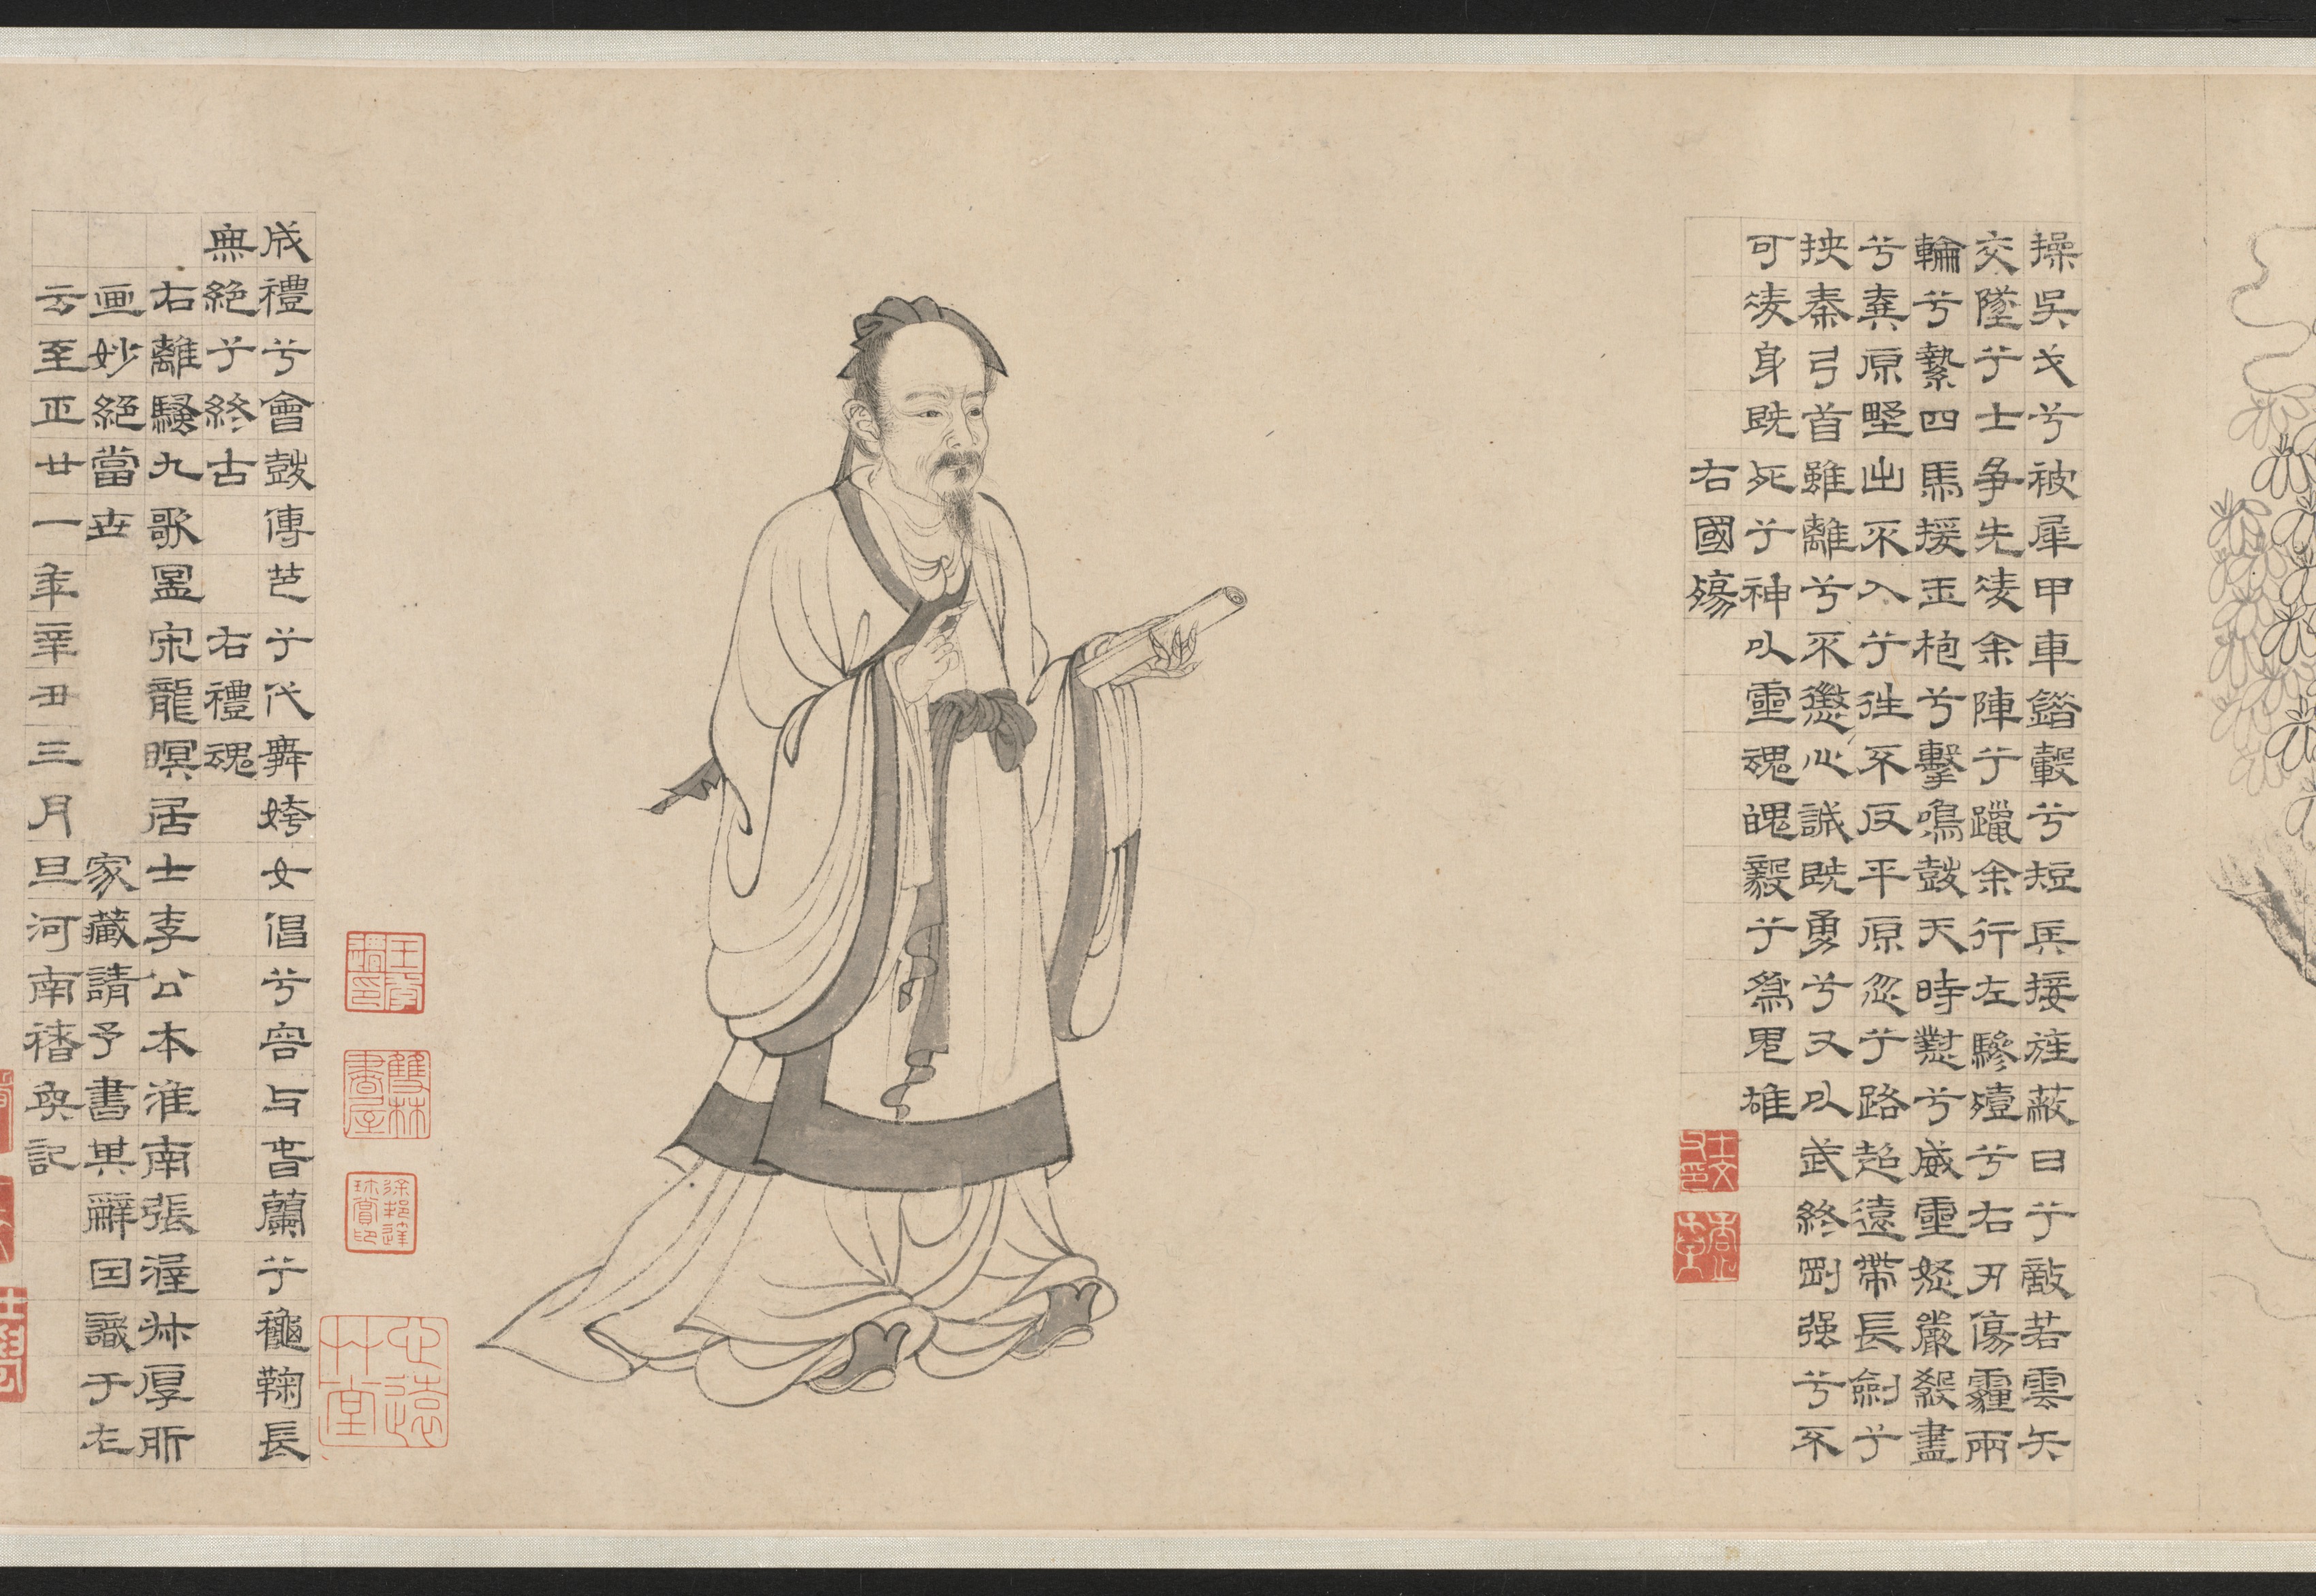 操吳戈兮被犀甲車錯轂兮短兵接旌蔽日兮敵若雲矢
交墜兮士争先淩余陣兮躐余行左驂殪兮右刃傷霾兩
輪兮縶四馬援玉枹兮擊鳴鼓天時懟兮威靈怒嚴殺盡
兮棄原壄出不入兮往不反平原忽兮路超遠帶長劍兮
挾秦弓首雖離兮不懲心誠既勇兮又以武終剛强兮不
可淩身既死兮神以靈魂魄毅兮為鬼雄
右國殤
王季遷印
雙林書屋
徐邦達珍賞印
心遠艸堂
成禮兮會鼓傳芭兮代舞姱女倡兮容与春蘭兮龝鞠長
無絕兮終古 右禮魂
右離騷九歌啚宋龍眠居士李公本淮南張渥叔厚所
画妙絕當世 家藏請予書其辭因識于左
云至正廿一年辛丑三月旦河南褚奐記